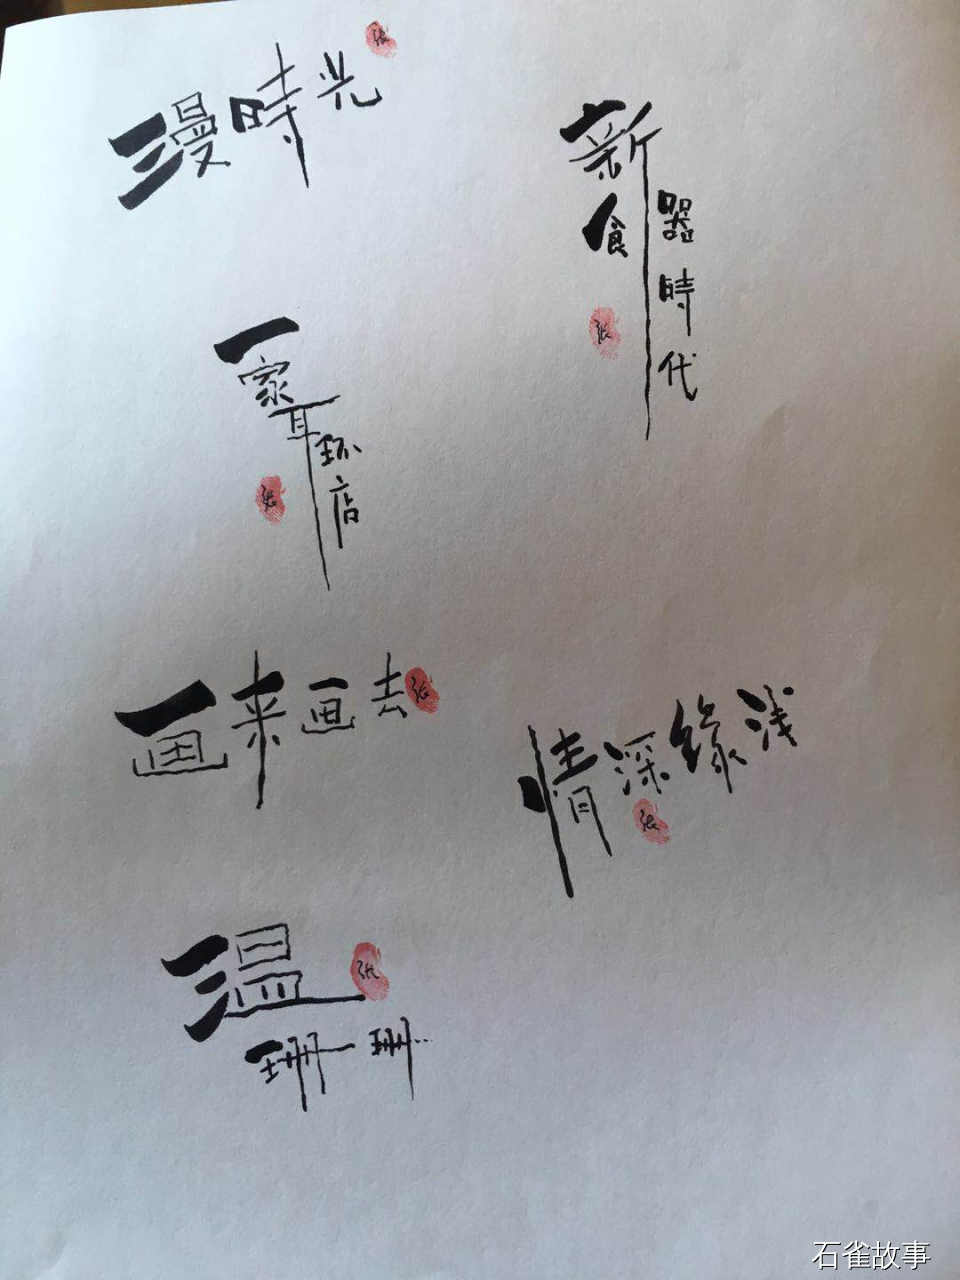 漫時光
張
新食器時代
张
一家耳环店
张
画来画去
张
情深缘浅
张
温
张
珊一珊...
石雀故事